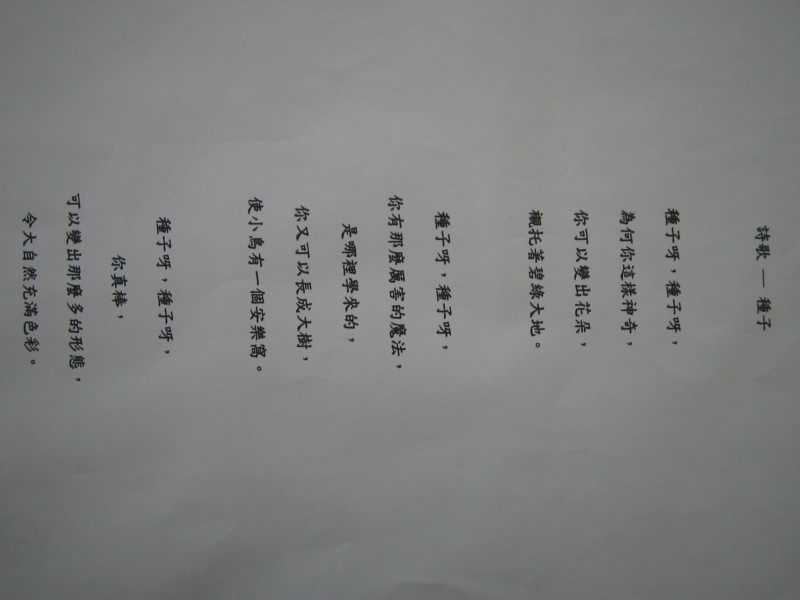 詩歌 — 種子
種子呀，種子呀，
為何你這樣神奇，
你可以變出花朵，
襯托著碧綠大地。
種子呀，種子呀，
你有那麼厲害的魔法，
是哪裡學來的，
你又可以長成大樹，
使小鳥有一個安樂窩。
種子呀，種子呀，
你真棒，
可以變出那麼多的形態，
令大自然充滿色彩。